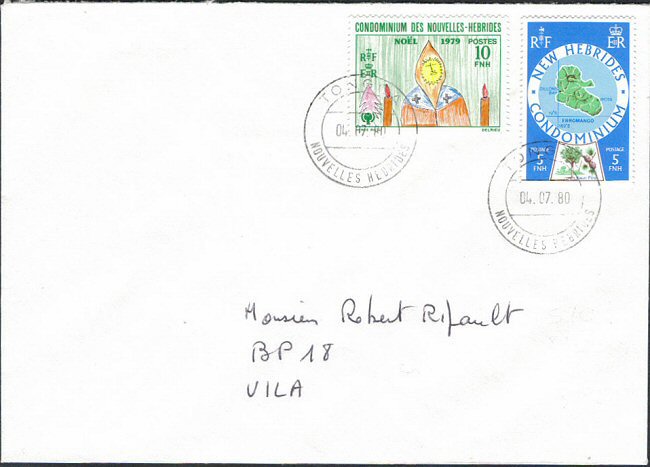 CONDOMINIUM DES NOUVELLES-HEBRIDES
NOËL 1979 POSTES
10
FNH
RF
EIIR
DELRIEU
RF EIIR
NEW HEBRIDES
CONDOMINIUM
ERROMANGO
POSTAGE
5
FNH
POSTAGE
5
FNH
04.07.80
NOUVELLES HEBRIDES
04.07.80
NOUVELLES HEBRIDES
Monsieur Robert Rifault
BP 18
VILA